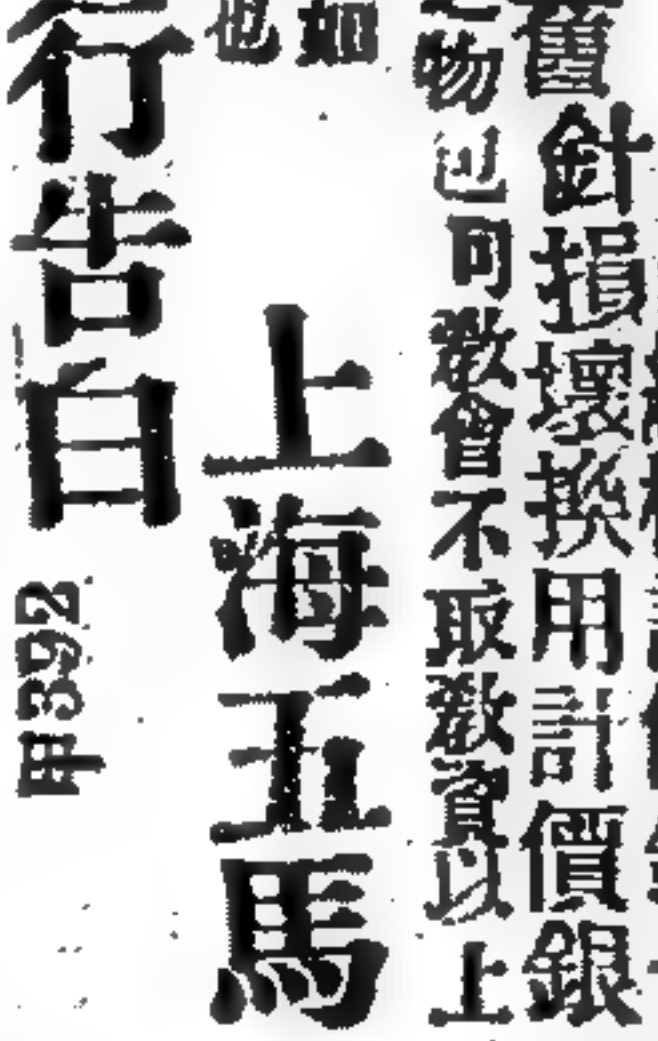 舊針損壞換用計價銀
物迅可教會不取教資以上
如
上海五馬
也
行告白
甲392